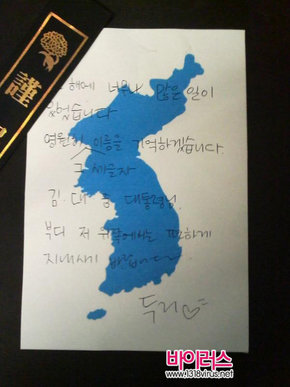 謹
해에 너무나 많은 일이
있었습니다
영원히 이름을 기억하겠습니다.
그 세글자
김.대.중 대통령님.
부디 저 위쪽에서는 편하게
지내시기 바랍니다
두리♡=
바이러스
www.1318virus.net